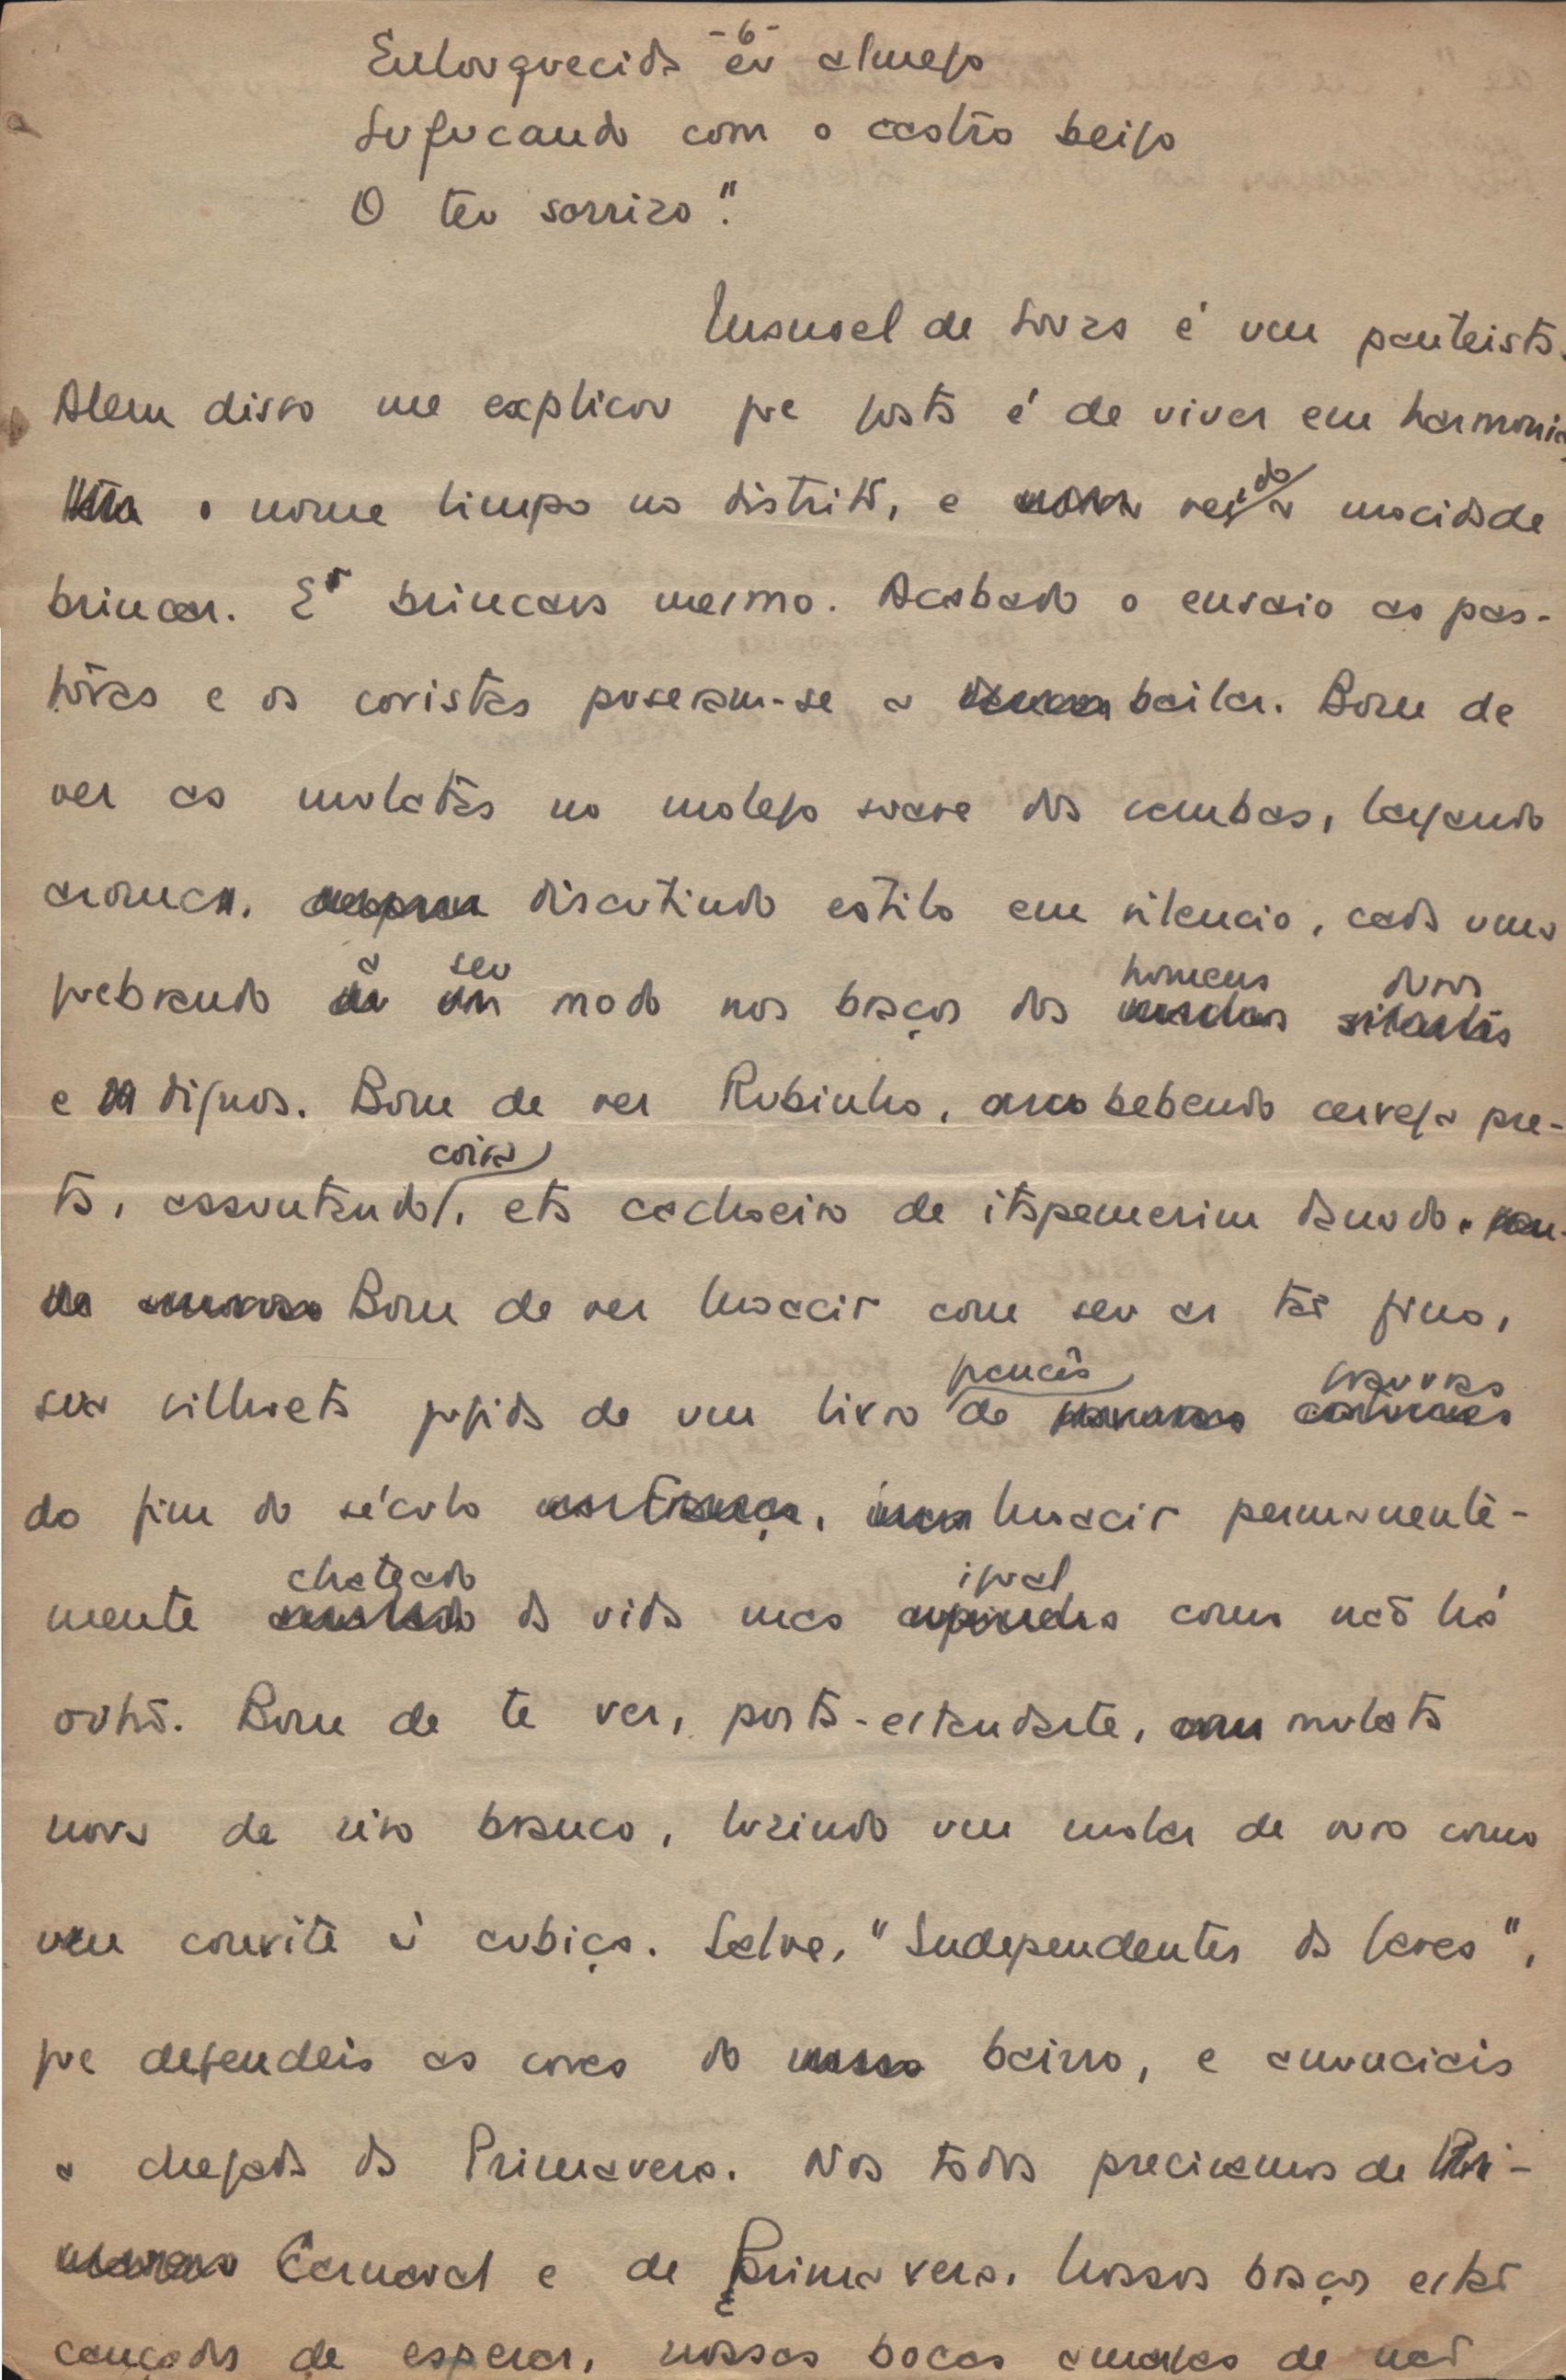 -6-
Enlouquecida eu almejo
Sufucando com o castro beijo
O teu sorrizo".
Manuel de Souza é um panteista.
Alem disso me explicou que gosta é de viver em harmonia,
o nome limpo no distrito, e vendo a mocidade
brincar. E brincava mesmo. Acabado o ensaio as pas-
tôras e os coristas puseram-se a bailar. Bom de
ver as mulatas no molejo suave das cambas, largando
aroma, discutindo estilo em silencio, cada uma
quebrando a seu modo nos braços dos homens duros
e dignos. Bom de ver Rubinho, bebendo cerveja pre-
ta, assuntando coisa, eta cachoeiro de itapemerim danado.
Bom de ver Moacir com seu ar tão fino,
sua silhueta fugida de um livro francês de gravuras
do fim do século, Moacir permanente-
mente chateado da vida mas igual como não há
outro. Bom de te ver, porta-estandarte, mulata
nova de riso branco, luzindo um molar de ouro como
um convite à cubiça. Salve, "Independentes da Gavea",
que defendeis as cores do nosso bairro, e anunciais
a chegada da Primavera. Nos todos precisamos de
Carnaval e de Primavera. Nossos braços estão
cançados de esperar, nossas bocas amargas de não